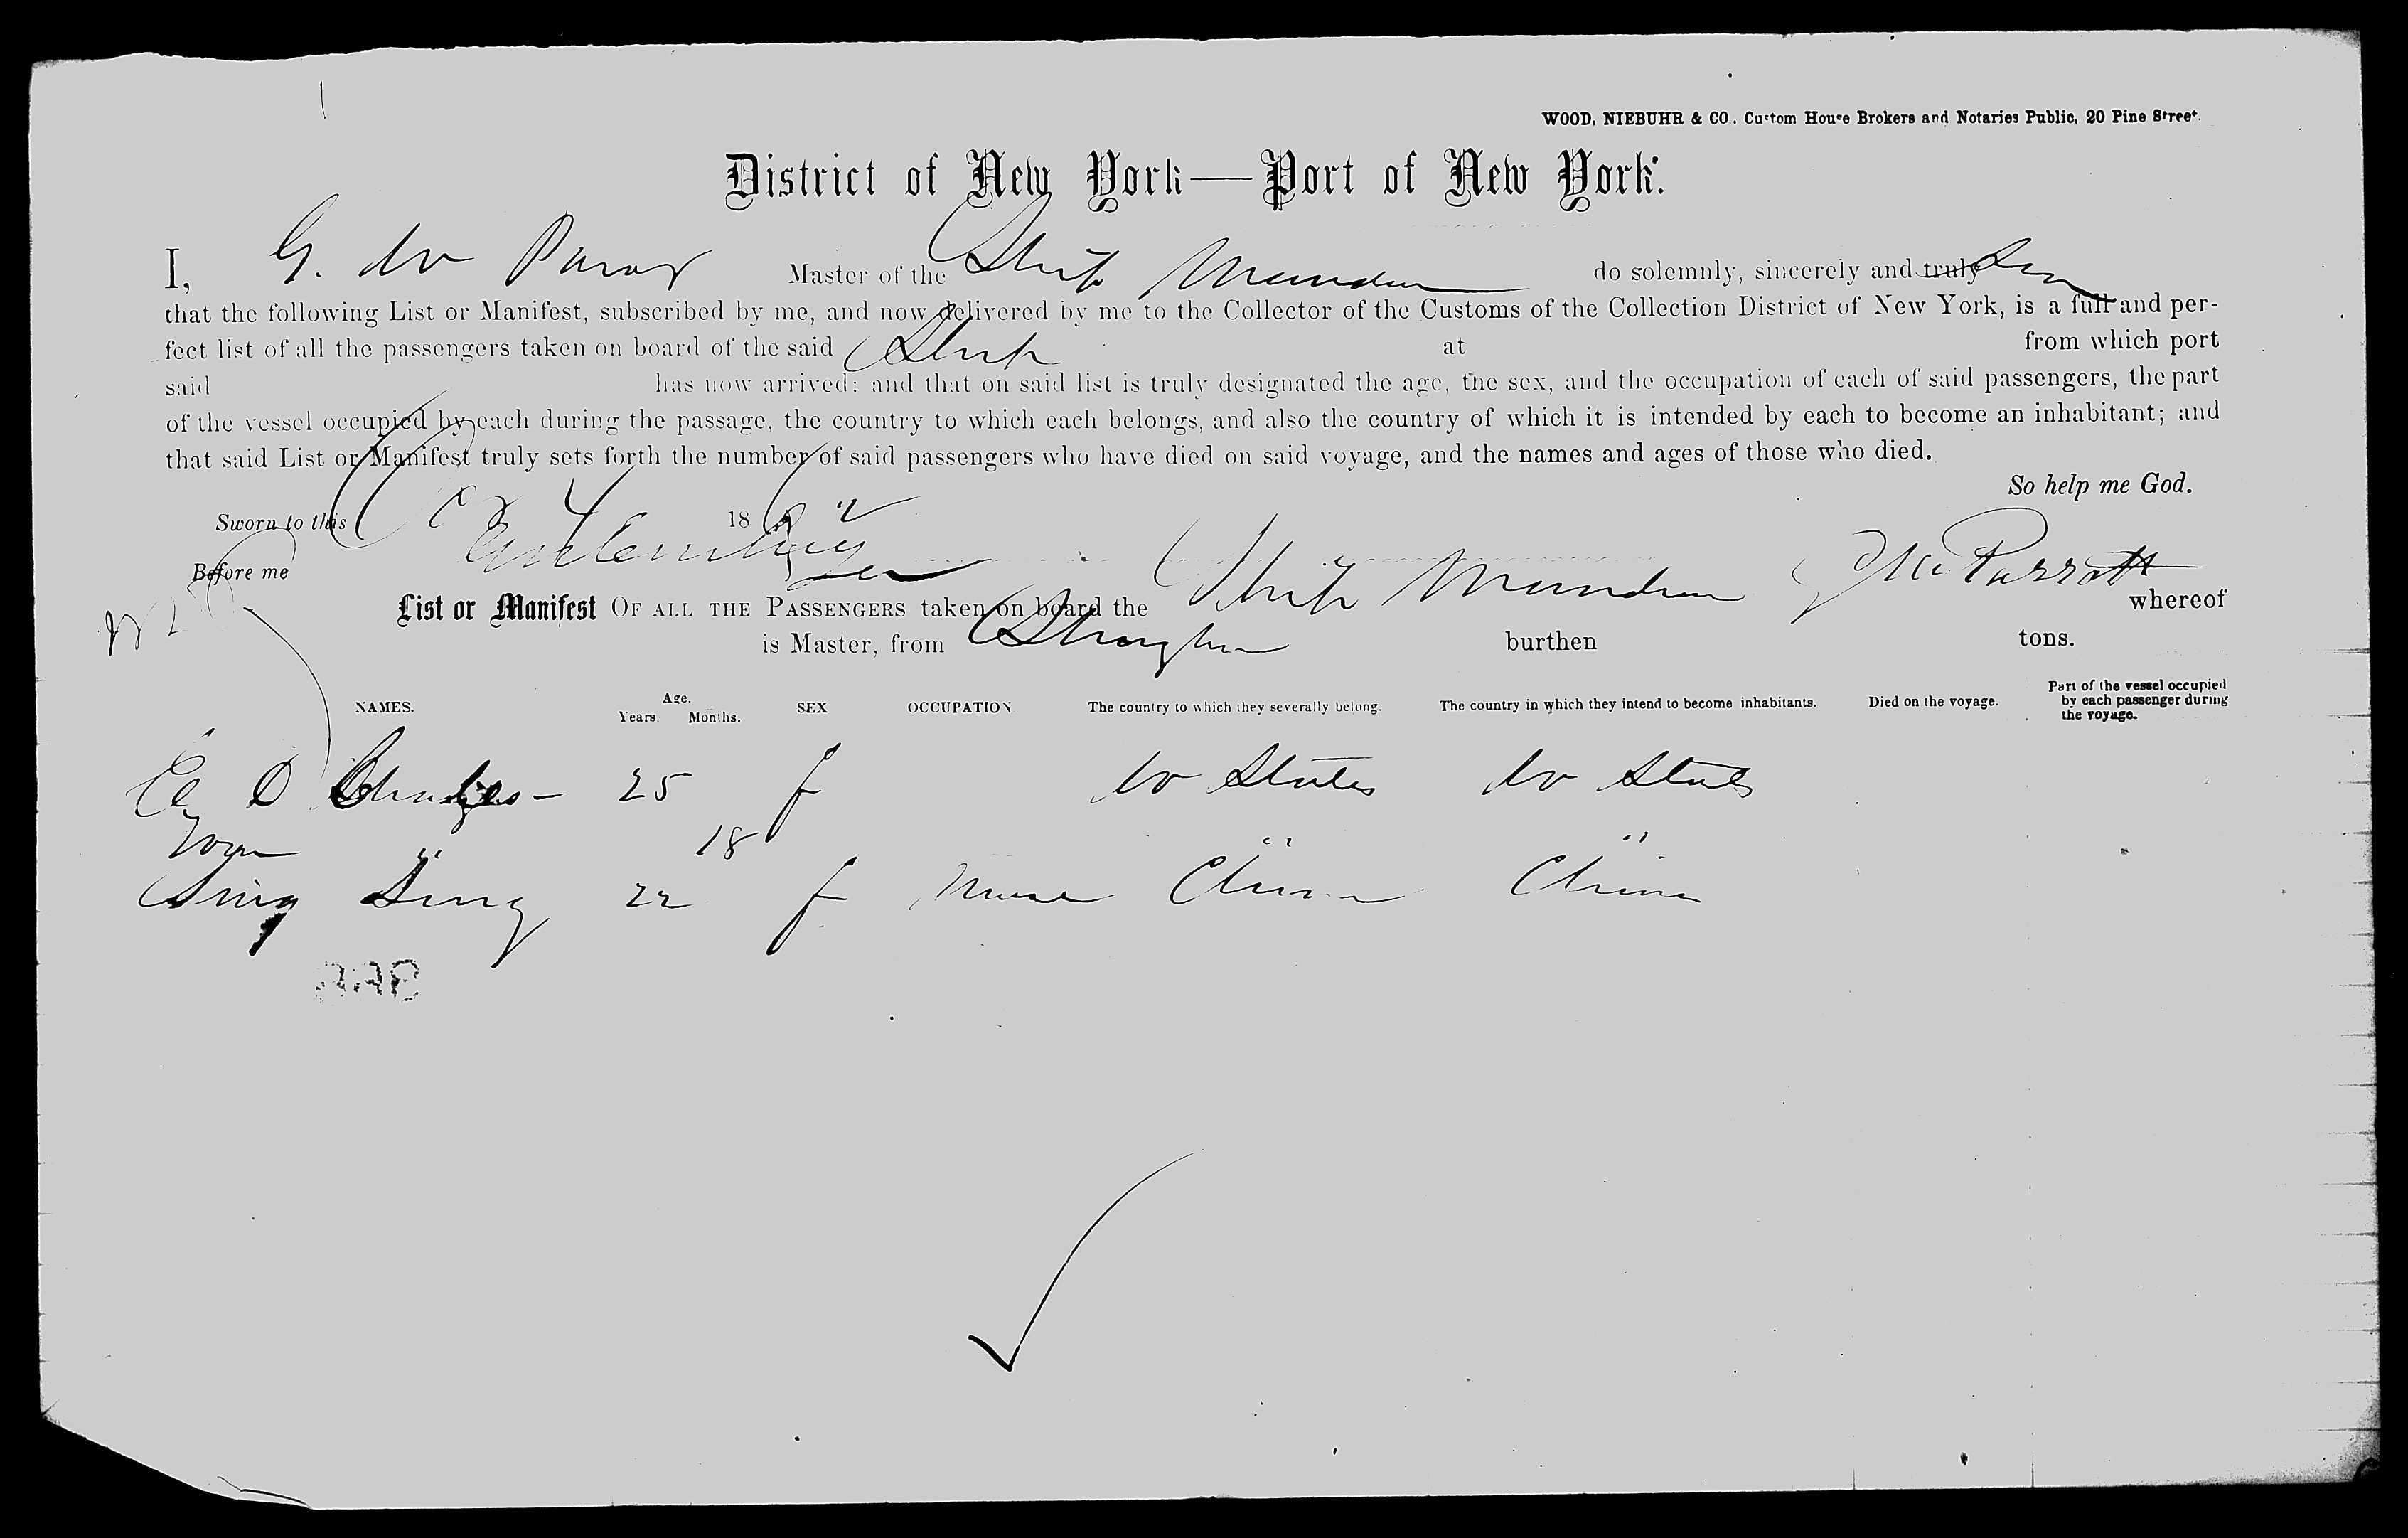 WOOD, NIEBUHR & CO., Custom House Brokers and Notaries Public, 20 Pine Street.
District of New York—Port of New York.
I, G. W Master of the Ship do solemnly, sincerely and truly
that the following List or Manifest, subscribed by me, and now delivered by me to the Collector of the Customs of the Collection District of New York, is a full and per-
fect list of all the passengers taken on board of the said Ship at from which port
said has now arrived: and that on said list is truly designated the age, the sex, and the occupation of each of said passengers, the part
of the vessel occupied by each during the passage, the country to which each belongs, and also the country of which it is intended by each to become an inhabitant; and
that said List or Manifest truly sets forth the number of said passengers who have died on said voyage, and the names and ages of those who died.
So help me God.
Sworn to this 1862
Before me
List or Manifest OF ALL THE PASSENGERS taken on board the Ship Parrott whereof
is Master, from burthen tons.
NAMES. Age. Years. Months. SEX OCCUPATION The country to which they severally belong. The country in which they intend to become inhabitants. Died on the voyage. Part of the vessel occupied by each passenger during the voyage.
25 f States
18 " "
Sing 22 f Nurse China China